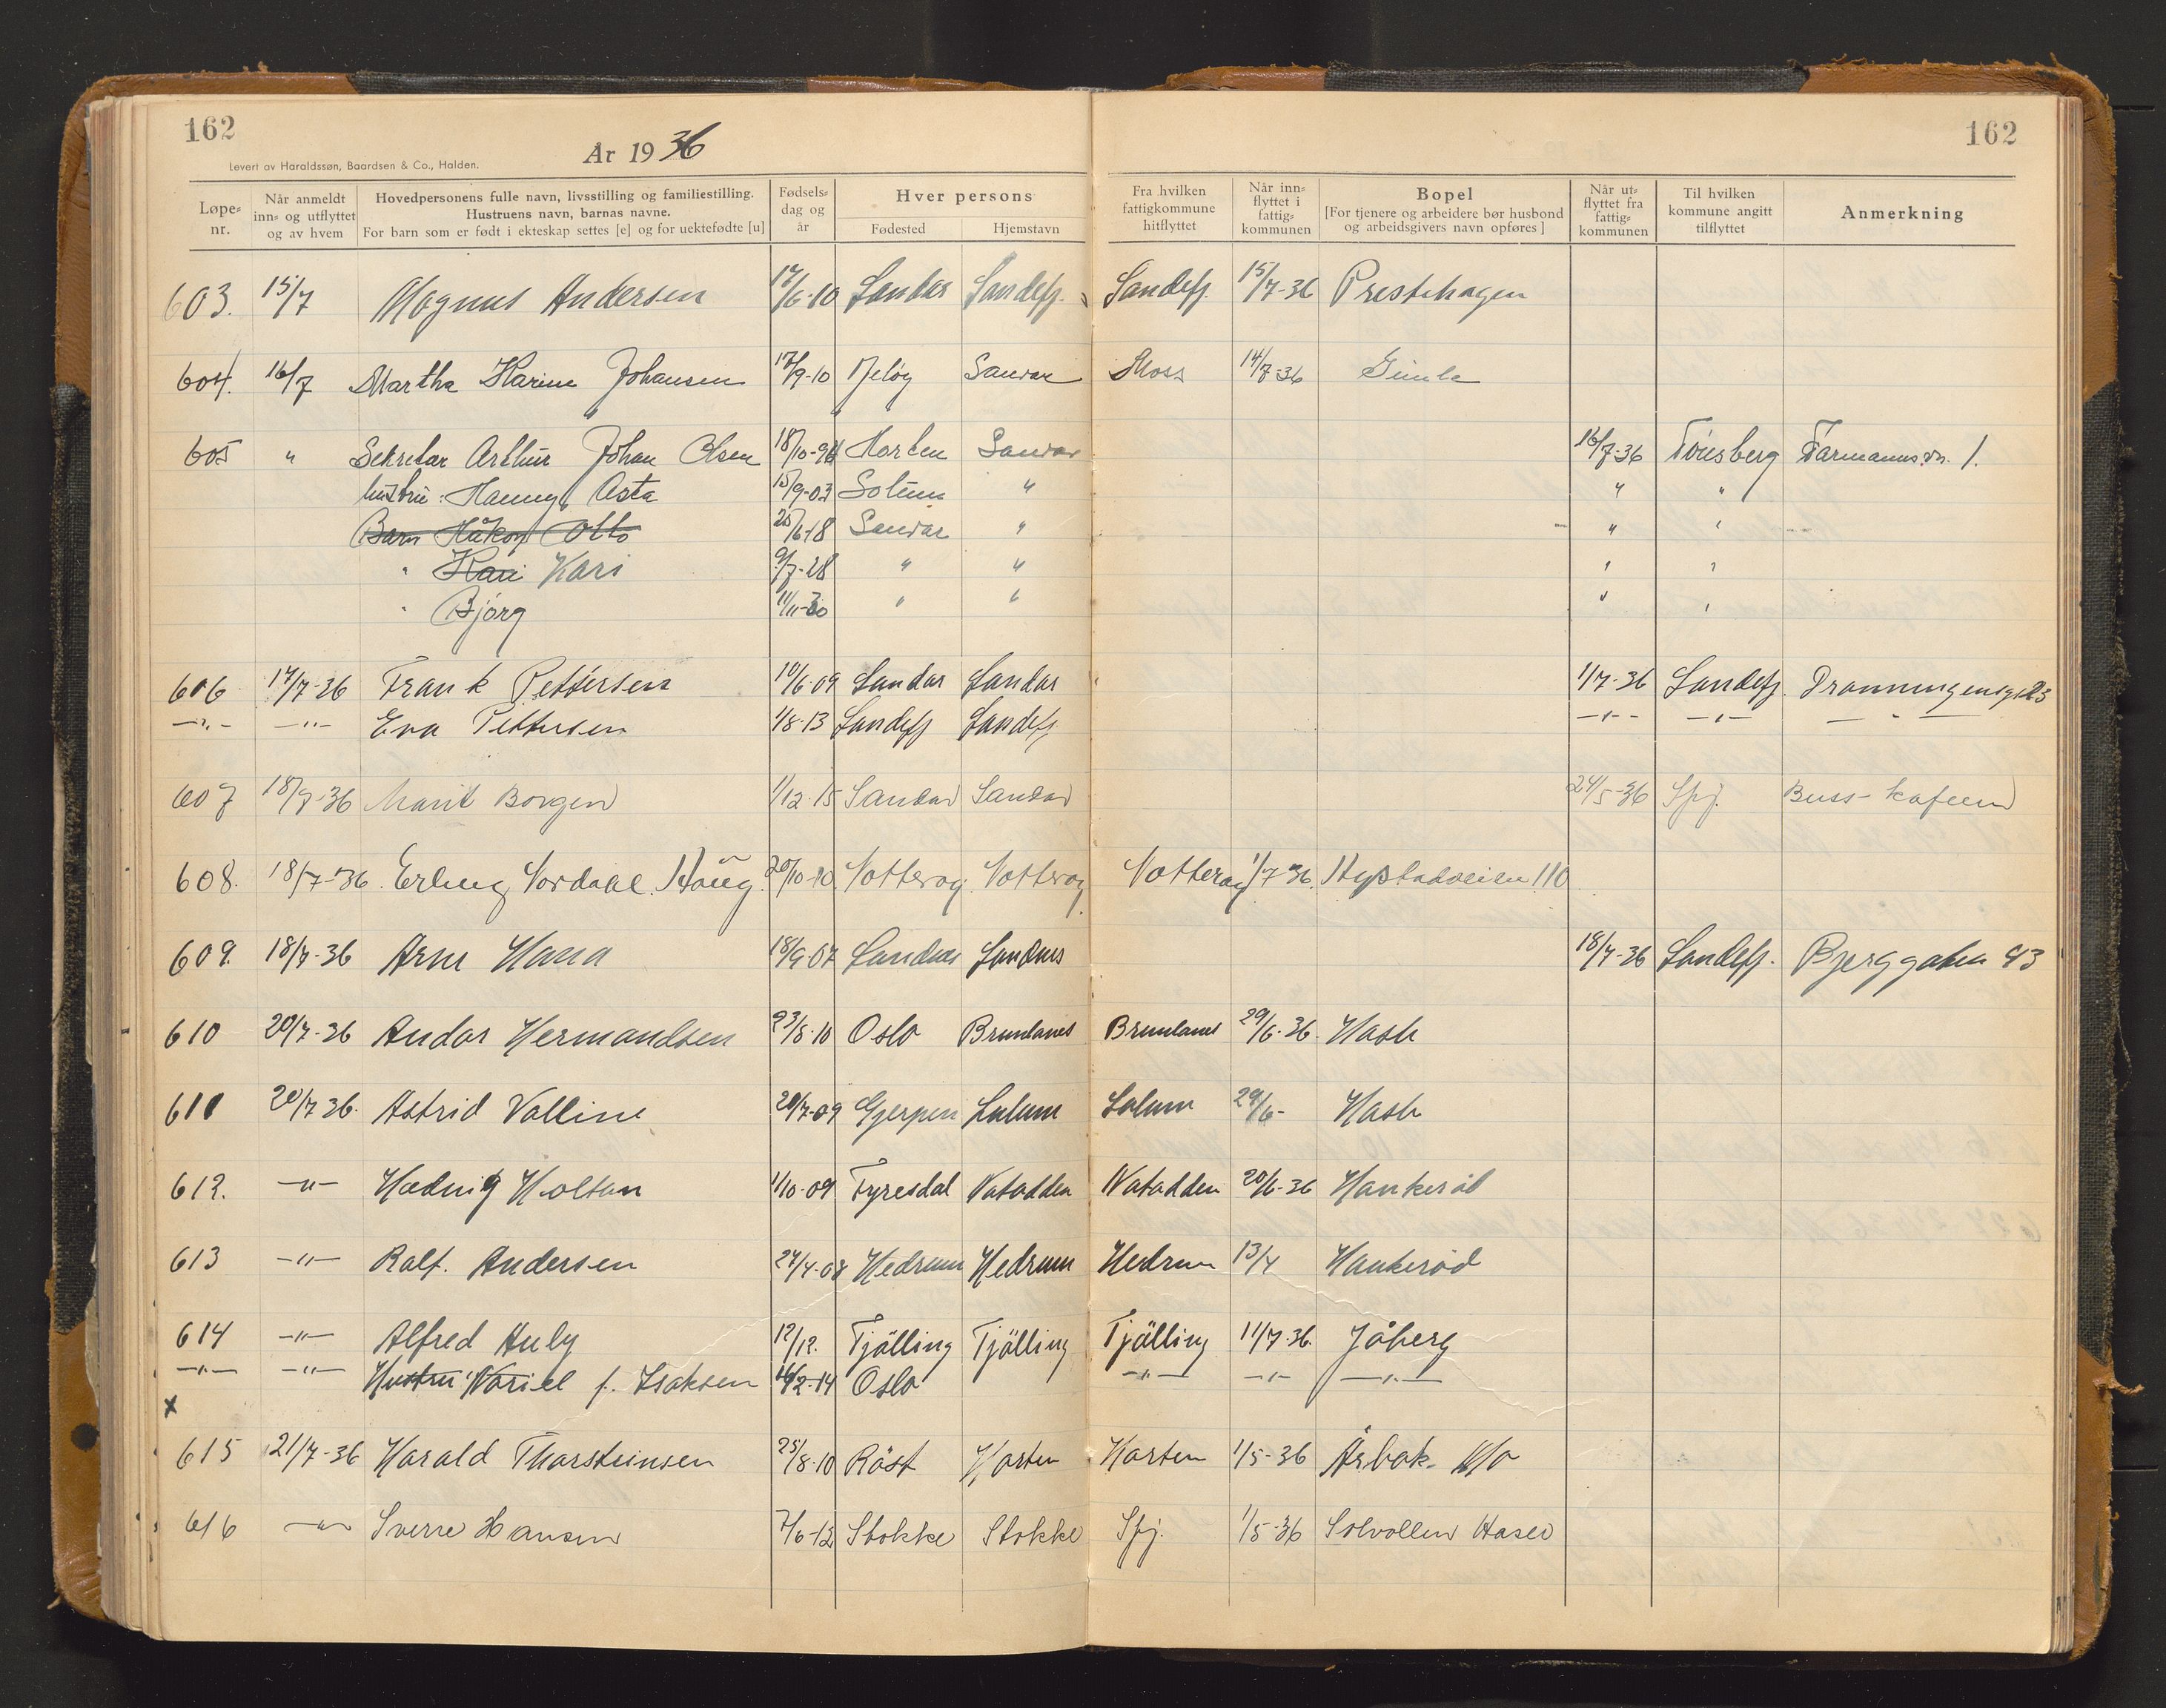 162
162
År 1936
Levert av Haraldssøn, Baardsen & Co., Halden.
Løpe-nr. Når anmeldt inn- og utflyttet og av hvem Hovedpersonens fulle navn, livsstilling og familiestilling. Hustruens navn, barnas navne. For barn som er født i ekteskap settes [e] og for uektefødte [u] Fødsels-dag og år Hver persons Fødested Hjemstavn Fra hvilken fattigkommune hitflyttet Når inn-flyttet i fattig-kommunen Bopel [For tjenere og arbeidere bør husbond og arbeidsgivers navn opføres] Når ut-flyttet fra fattig-kommunen Til hvilken kommune angitt tilflyttet Anmerkning
603. 15/7 Magnus Andersen 17/6-10 Sandar Sandefj. Sandefj. 15/7-36 Prestehagen
604. 16/7 Martha Karine Johansen 17/9-10 Jeløy Sandar Moss 14/7-36 Gimle
605 " Sekretær Arthur Johan Olsen 18/10-96 Horten Sandar 16/7-36 Tønsberg Farmannsvn. 1.
hustru: Hanny Asta 15/9-03 Solum " " "
Barn Håkon Otto 25/6-18 Sandar " " "
" Kari Kari 9/7-28 " " " "
" Bjørg 11/11-30 " " " "
606 17/7-36 Frank Pettersen 10/6-09 Sandar Sandar 1/7-36 Sandefj. Dronningensgt 23
—"— —"— Eva Pettersen 1/8-13 Sandefj Sandefj —"— —"— —"—
607 18/7-36 Marit Borgen 1/12-15 Sandar Sandar 24/5-36 Sfj. Buss-kafeen
608. 18/7-36. Erling Nordahl Haug. 20/10-10. Nøtterøy. Nøtterøy Nøtterøy 1/7-36. Hystadveien 110
609. 18/7-36 Arne Hana 18/9-07 Sandnes Sandnes 18/7-36 Sandefj. Bjerggaten 43
610 20/7-36 Andor Hermandsen 23/8-10 Oslo Brunlanes Brunlanes 29/6-36. Hasle
611 20/7 36. Astrid Valline 20/7-09 Gjerpen Solum Solum 29/6- Hasle
612. —"— Hedvig Holtan 1/10-09 Fyresdal Notodden Notodden 20/6-36 Haukerød
613 —"— Ralf. Andersen 27/4-08 Hedrum Hedrum Hedrum 13/7 Haukerød
614 —"— Alfred Auby 12/12. Tjølling Tjølling Tjølling 11/7-36. Jåberg
—"— —"— Hustru f. Isaksen 16/2-14 Oslo —"— —"— —"—
x
615 21/7-36 Harald Thorsteinsen 25/8-10 Røst Horten Horten 1/5-36
616 —"— Sverre Hansen 7/6-12 Stokke Stokke Sfj. 1/5-36 Solvollen Hasle